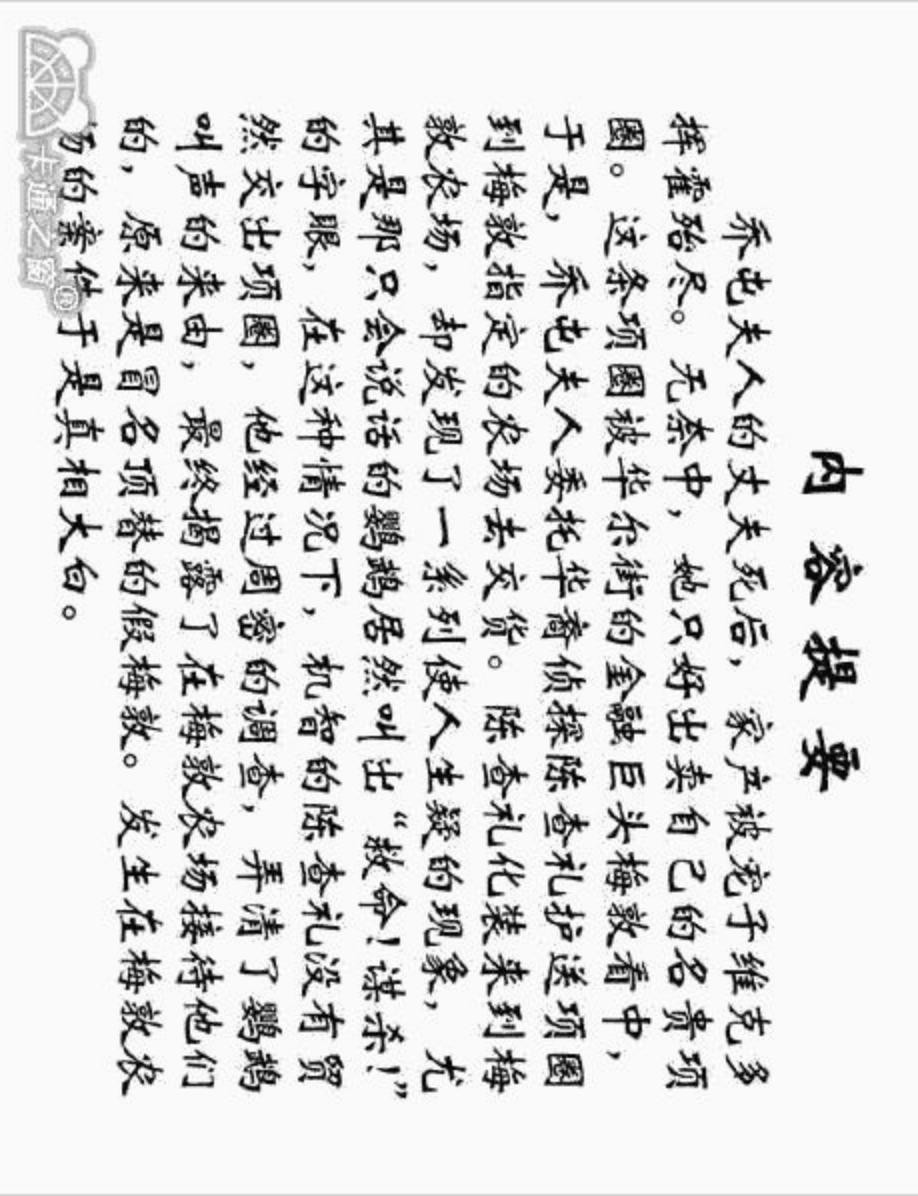 内容提要
乔屯夫人的丈夫死后，家产被宠子维克多
挥霍殆尽。无奈中，她只好出卖自己的名贵项
圈。这条项圈被华尔街的金融巨头梅敦看中，
于是，乔屯夫人委托华裔侦探陈查礼护送项圈
到梅敦指定的农场去交货。陈查礼化装来到梅
敦农场，却发现了一系列使人生疑的现象，尤
其是那只会说话的鹦鹉居然叫出“救命！谋杀！”
的字眼，在这种情况下，机智的陈查礼没有贸
然交出项圈，他经过周密的调查，弄清了鹦鹉
叫声的来由，最终揭露了在梅敦农场接待他们
的，原来是冒名顶替的假梅敦。发生在梅敦农
场的案件于是真相大白。
卡通之窗